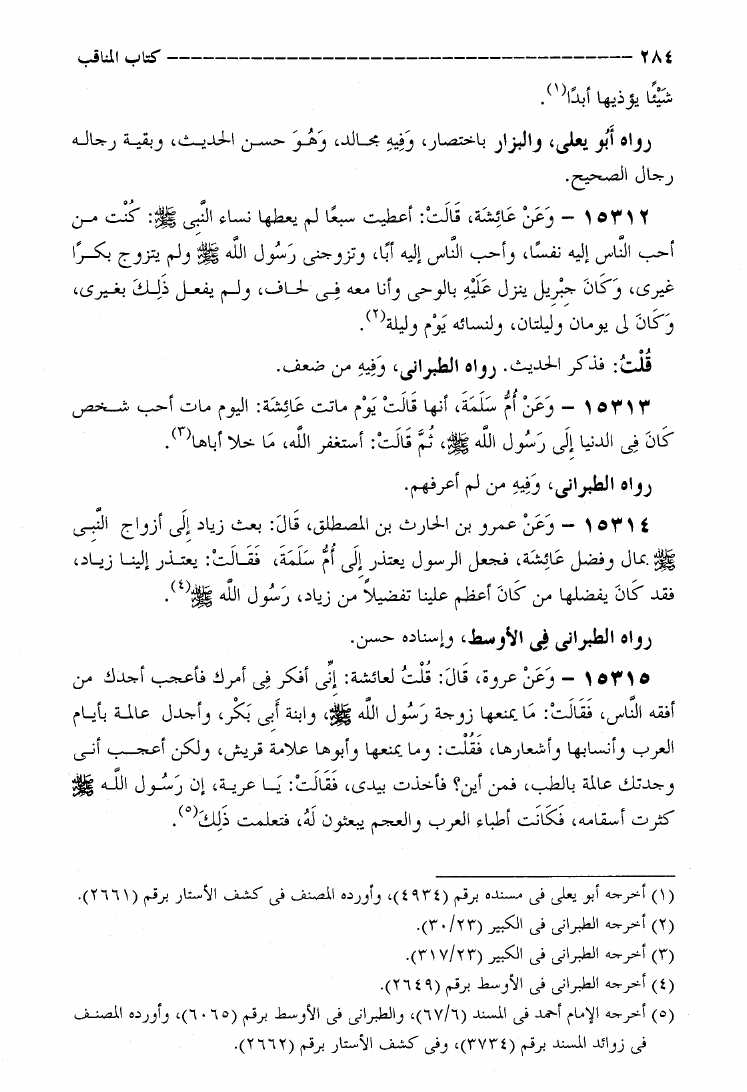 ٢٨٤ ------------------------------------------ كتاب المناقب
شَيْئًا يؤذيها أبدًا(١).
رواه أَبُو يعلى، والبزار باختصار، وَفِيهِ مجالد، وَهُوَ حسن الحديث، وبقية رجاله
رجال الصحيح.
١٥٣١٢ – وَعَنْ عَائِشَة، قَالَتْ: أعطيت سبعًا لم يعطها نساء النَّبِى ﷺ: كُنْت من
أحب النَّاس إليه نفسًا، وأحب النَّاس إليه أبًا، وتزوجنى رَسُول اللَّه ﷺ ولم يتزوج بكرًا
غيرى، وَكَانَ جبْرِيل ينزل عَلَيْهِ بالوحى وأنا معه فِى لحاف، ولم يفعل ذَلِكَ بغيرى،
وَكَانَ لى يومان وليلتان، ولنسائه يَوْم وليلة(٢).
قُلْتُ: فذكر الحديث. رواه الطبرانى، وَفِيهِ من ضعف.
١٥٣١٣ – وَعَنْ أُمِّ سَلَمَة، أنها قَالَتْ يَوْم ماتت عَائِشَة: اليوم مات أحب شخص
كَانَ فِى الدنيا إِلَى رَسُول اللَّه ﷺ، ثُمَّ قَالَتْ: أستغفر اللَّه، مَا خلا أباها(٣).
رواه الطبرانى، وَفِيهِ من لم أعرفهم.
١٥٣١٤ – وَعَنْ عمرو بن الحارث بن المصطلق، قَالَ: بعث زياد إِلَى أزواج النَّبِى
ﷺ بمال وفضل عَائِشَة، فجعل الرسول يعتذر إِلَى أُمِّ سَلَمَة، فَقَالَتْ: يعتذر إلينا زياد،
فقد كَانَ يفضلها من كَانَ أعظم علينا تفضيلاً من زياد، رَسُول اللَّه ﷺ(٤).
رواه الطبرانى فِى الأوسط، وإسناده حسن.
١٥٣١٥ – وَعَنْ عروة، قَالَ: قُلْتُ لعائشة: إِنِّى أفكر فِى أمرك فأعجب أجدك من
أفقه النَّاس، فَقَالَتْ: مَا يمنعها زوجة رَسُول اللَّه ﷺ، وابنة أَبِى بَكْر، وأجدل عالمة بأيام
العرب وأنسابها وأشعارها، فَقُلْت: وما يمنعها وأبوها علامة قريش، ولكن أعجب أنى
وجدتك عالمة بالطب، فمن أين؟ فأخذت بيدى، فَقَالَتْ: يَا عرية، إن رَسُول اللَّه ﷺ
كثرت أسقامه، فَكَانَت أطباء العرب والعجم يبعثون لَهُ، فتعلمت ذَلِكَ(٥).
(١) أخرجه أبو يعلى فى مسنده برقم (٤٩٣٤)، وأورده المصنف فى كشف الأستار برقم (٢٦٦١).
(٢) أخرجه الطبرانى فى الكبير (٣٠/٢٣).
(٣) أخرجه الطبرانى فى الكبير (٣١٧/٢٣).
(٤) أخرجه الطبرانى فى الأوسط برقم (٢٦٤٩).
(٥) أخرجه الإمام أحمد فى المسند (٦٧/٦)، والطبرانى فى الأوسط برقم (٦٠٦٥)، وأورده المصنف
فى زوائد المسند برقم (٣٧٣٤)، وفى كشف الأستار برقم (٢٦٦٢).